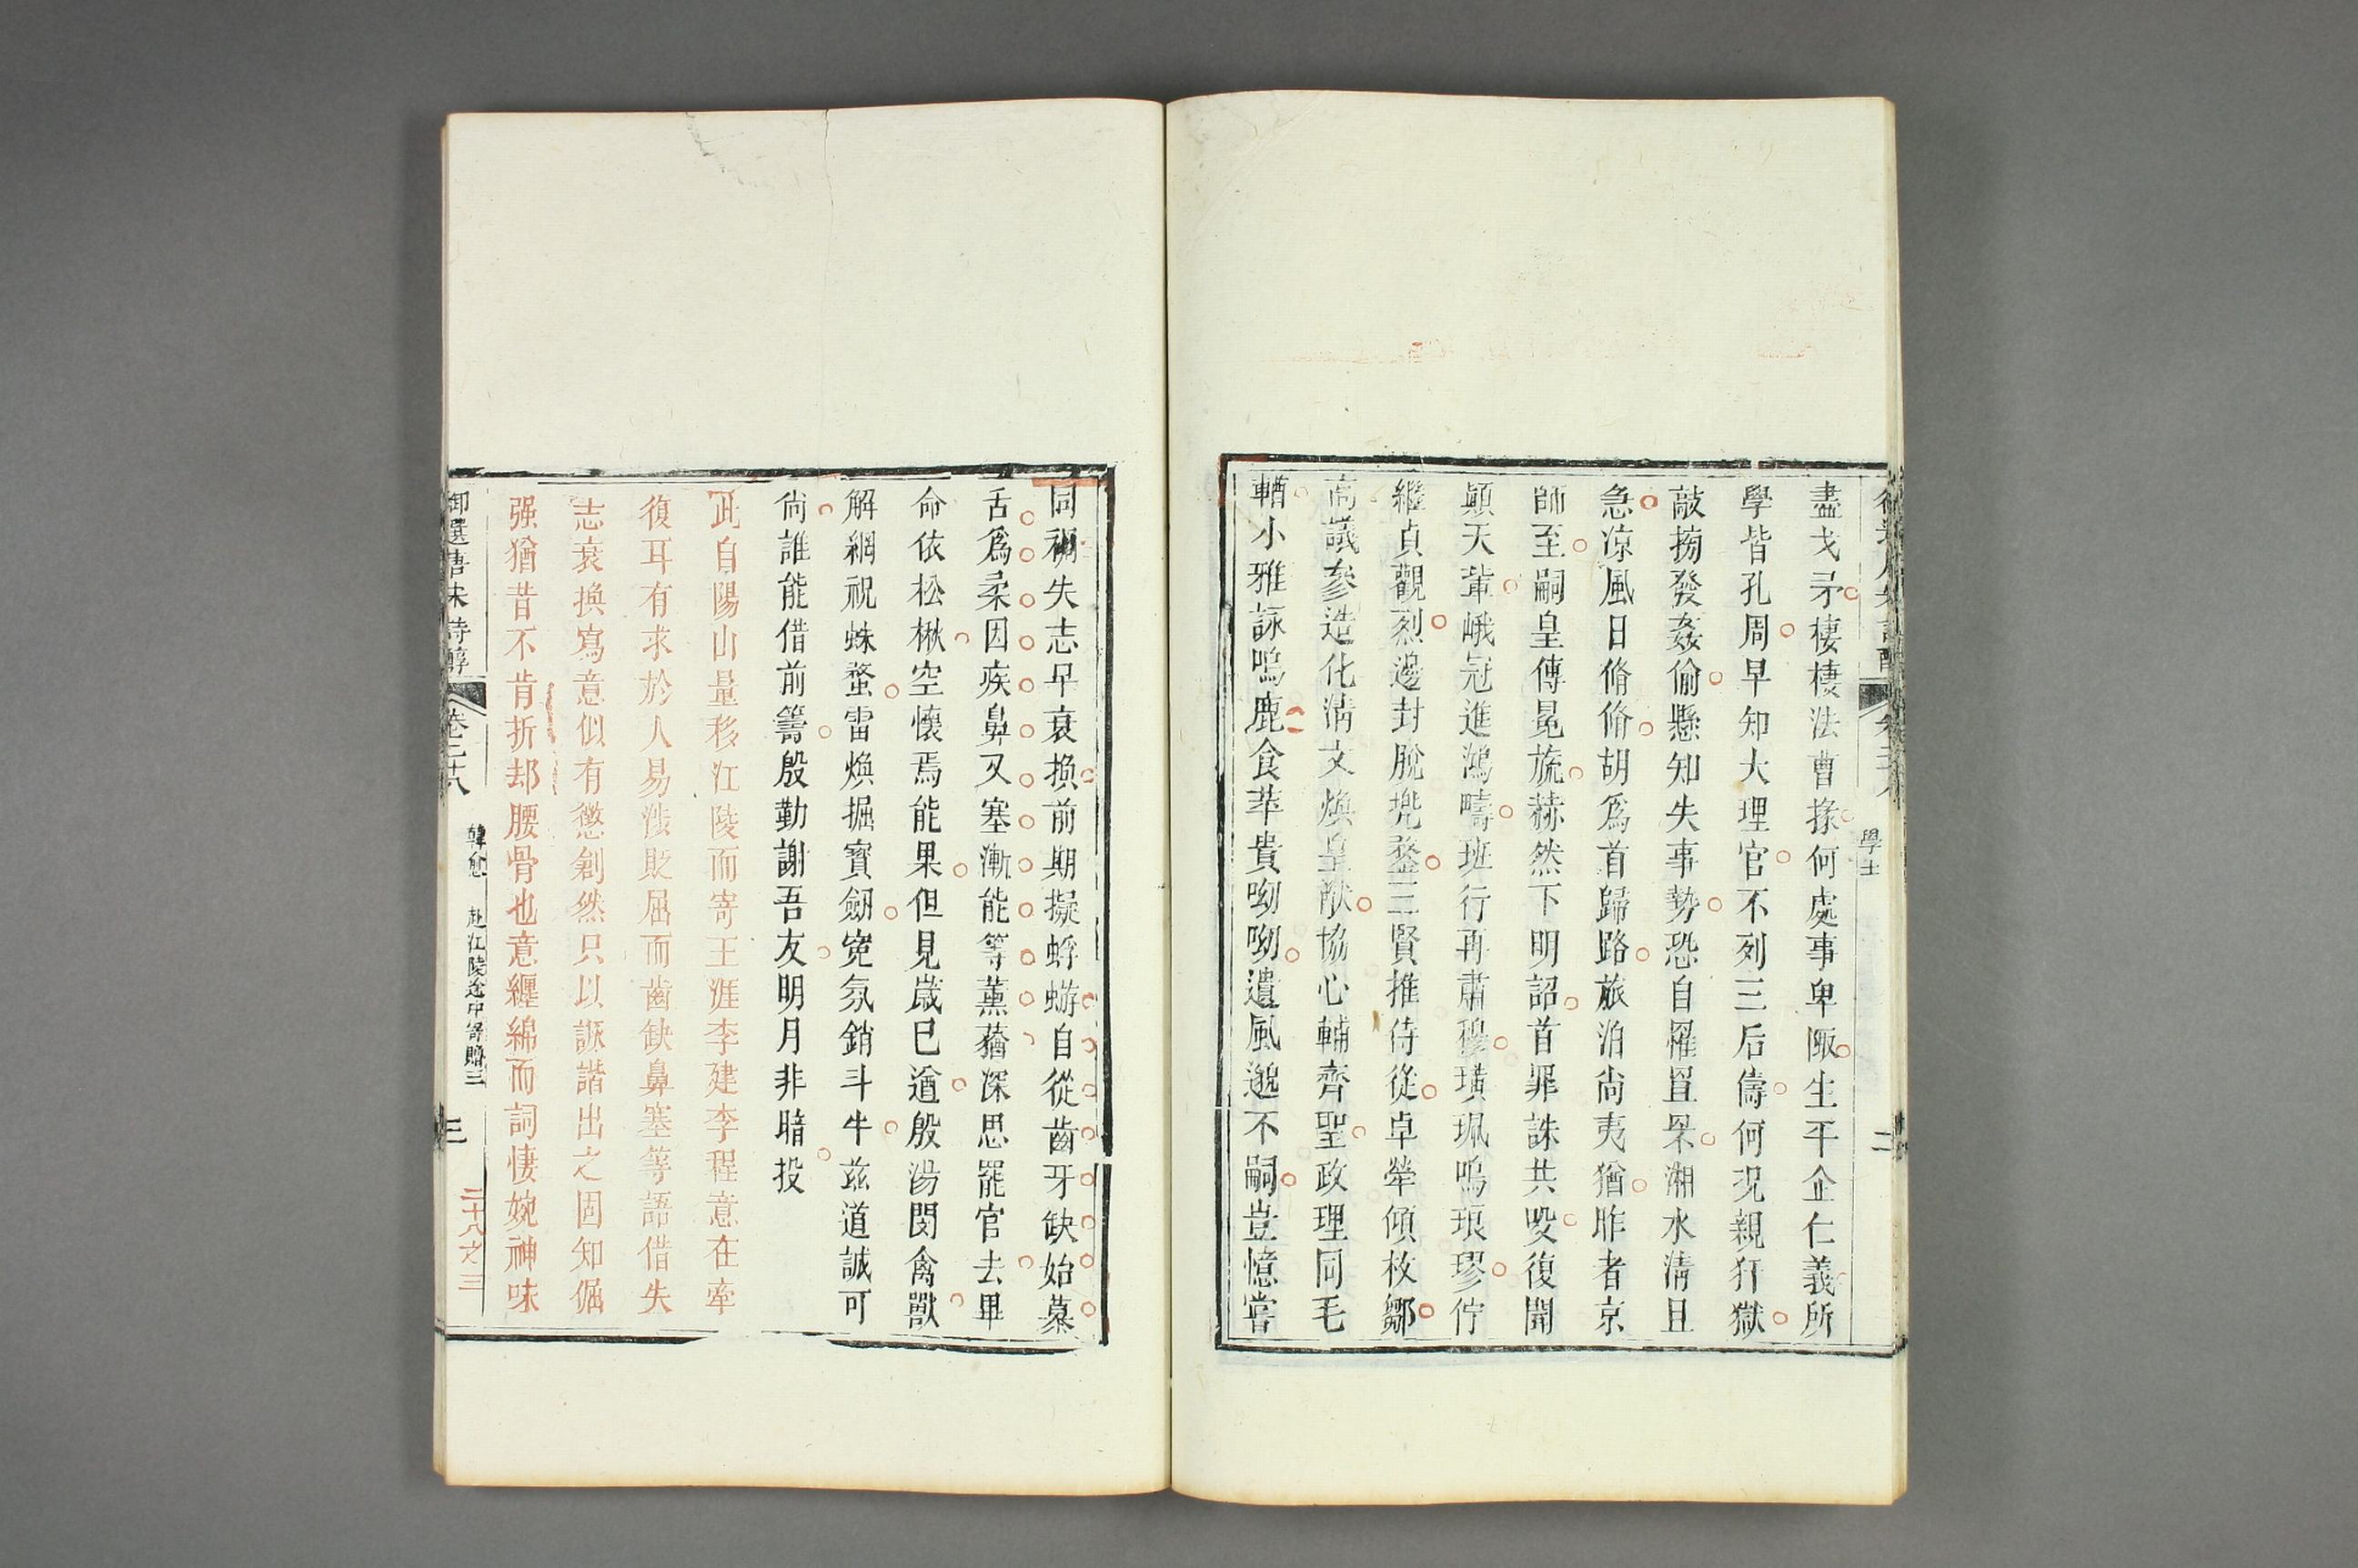 學士
盡戈矛棲棲法曹掾何處事卑陬生平企仁義所
學皆孔周早知大理官不列三后儔何況親犴獄
敲搒發姦偷懸知失事勢恐自罹罝罘湘水清且
急涼風日脩脩胡爲首歸路旅泊尚夷猶昨者京
師至嗣皇傳冕旒赫然下明詔首罪誅共吺復聞
顛夭輩峨冠進鴻疇班行再肅穆璜珮鳴琅璆佇
繼貞觀烈邊封脫兜鍪三賢推侍從卓犖傾枚鄒
高議參造化清文煥皇猷協心輔齊聖政理同毛
輶小雅詠鳴鹿食苹貴呦呦遺風邈不嗣豈憶嘗
同裯失志早衰換前期擬蜉蝣自從齒牙缺始慕
舌爲柔因疾鼻又塞漸能等薰蕕深思罷官去畢
命依松楸空懷焉能果但見歲已遒殷湯閔禽獸
解網祝蛛蝥雷煥掘寶劒寃氛銷斗牛茲道誠可
尚誰能借前籌殷勤謝吾友明月非暗投
此自陽山量移江陵而寄王涯李建李程意在牽
復耳有求於人易涉貶屈而齒缺鼻塞等語借失
志衰換寫意似有懲創然只以詼諧出之固知倔
强猶昔不肯折却腰骨也意纏綿而詞悽婉神味
御選唐宋詩醇 卷二十八 韓愈 赴江陵途中寄贈三 三 二十八之三